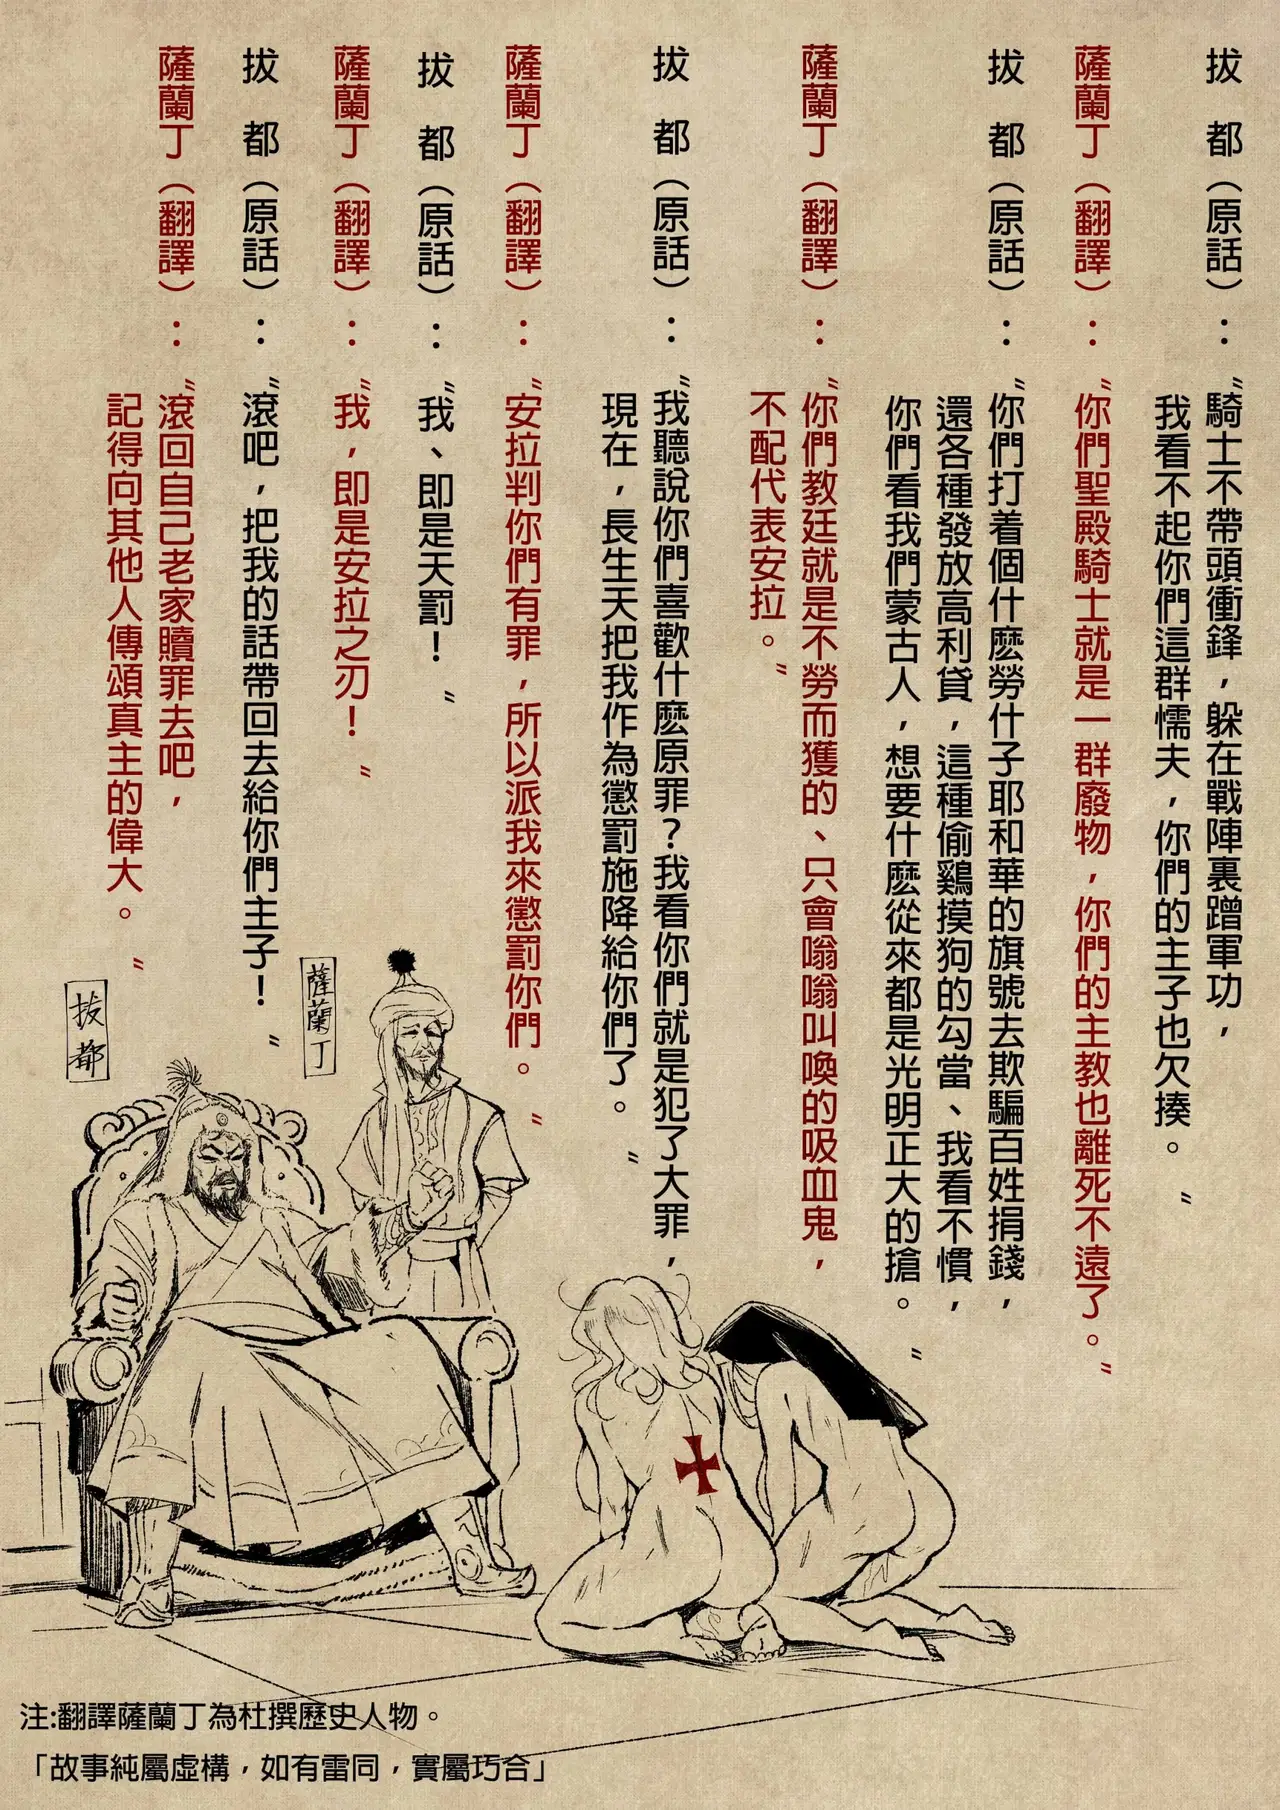 拔　都（原話）：“騎士不帶頭衝鋒，躲在戰陣裏蹭軍功，
我看不起你們這群懦夫，你們的主子也欠揍。”
薩蘭丁（翻譯）：“你們聖殿騎士就是一群廢物，你們的主教也離死不遠了。”
拔　都（原話）：“你們打着個什麽勞什子耶和華的旗號去欺騙百姓捐錢，
還各種發放高利貸，這種偷鷄摸狗的勾當、我看不慣，
你們看我們蒙古人，想要什麽從來都是光明正大的搶。”
薩蘭丁（翻譯）：“你們教廷就是不勞而獲的、只會嗡嗡叫喚的吸血鬼，
不配代表安拉。”
拔　都（原話）：“我聽說你們喜歡什麽原罪？我看你們就是犯了大罪，
現在，長生天把我作為懲罰施降給你們了。”
薩蘭丁（翻譯）：“安拉判你們有罪，所以派我來懲罰你們。”
拔　都（原話）：“我、即是天罰！”
薩蘭丁（翻譯）：“我，即是安拉之刃！”
拔　都（原話）：“滾吧，把我的話帶回去給你們主子！”
薩蘭丁（翻譯）：“滾回自己老家贖罪去吧，
記得向其他人傳頌真主的偉大。”
薩蘭丁
拔都
注:翻譯薩蘭丁為杜撰歷史人物。
「故事純屬虛構，如有雷同，實屬巧合」